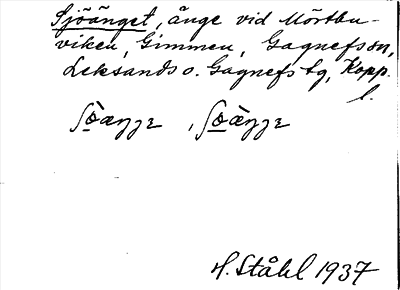 Sjöänget, änge vid Mörtbu-
viken, Gimmen, Gagnefs sn,
Leksands o. Gagnefs tg, Kopp.
l.
H. Ståhl 1937